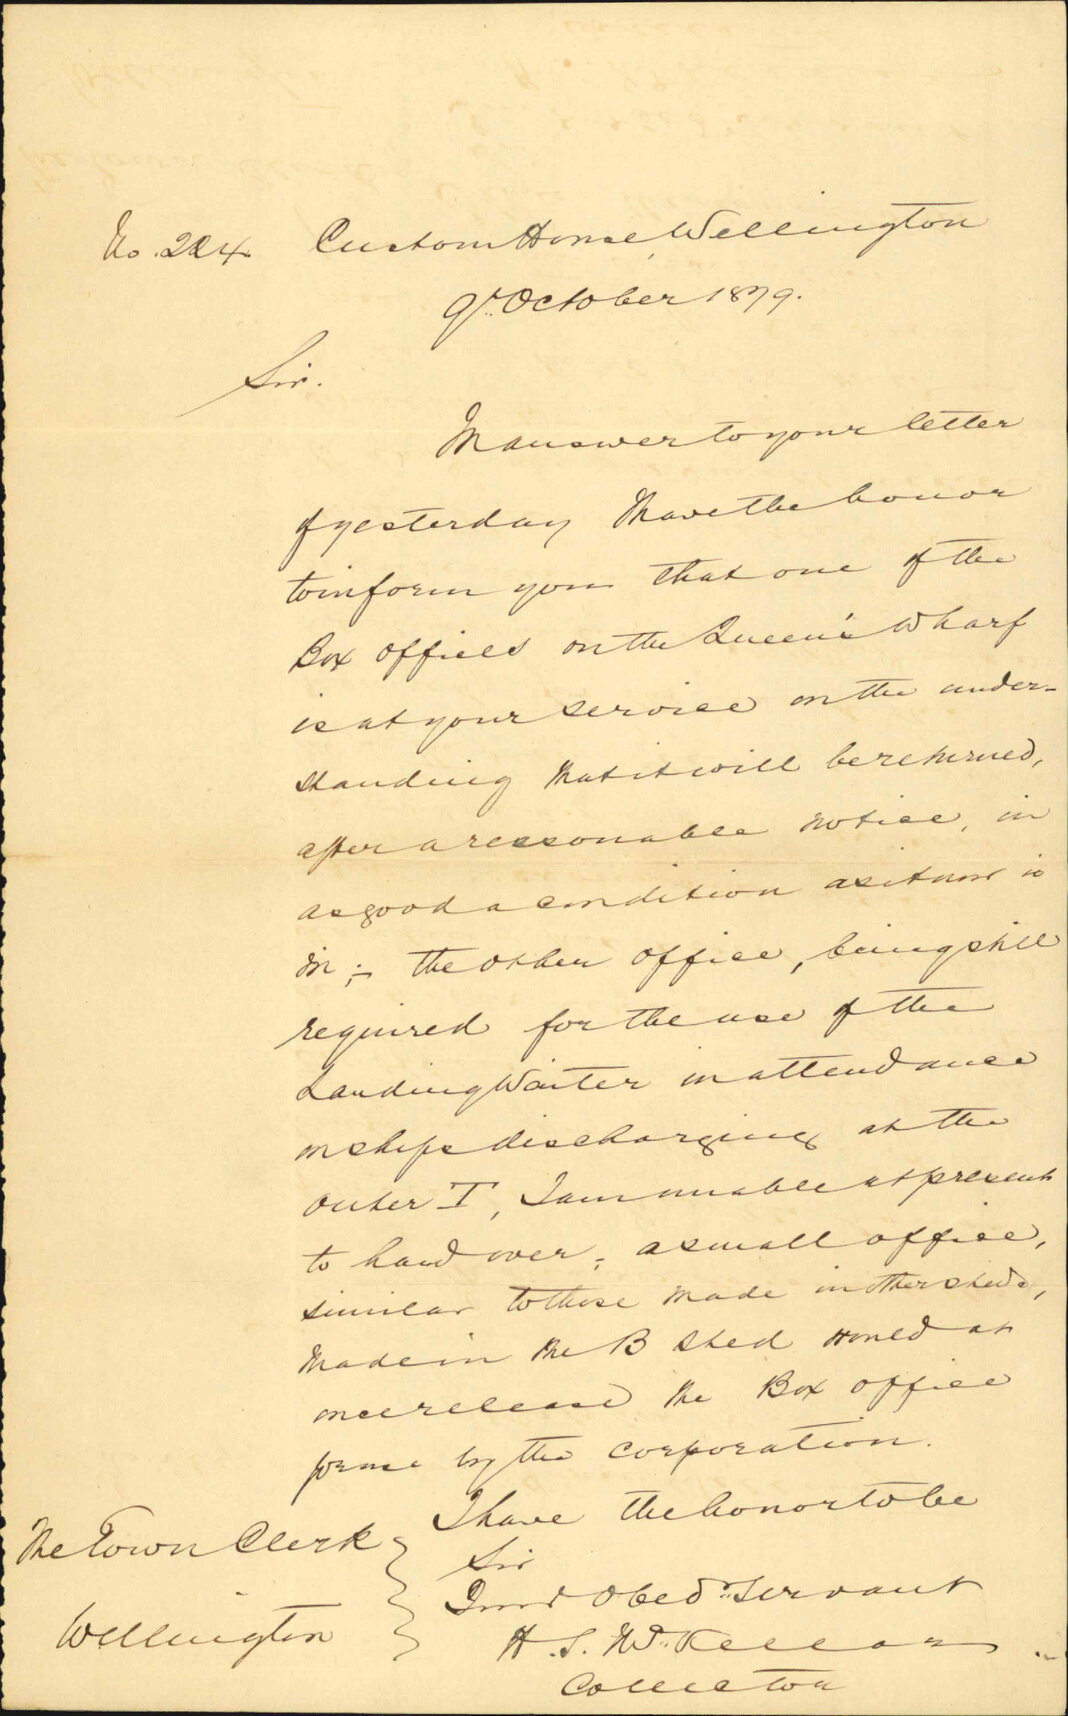 No. 224 Custom House, Wellington
9th October 1879.
Sir.
In answer to your letter
of yesterday I have the honor
to inform you that one of the
Box offices on the Queen's Wharf
is at your service on the under-
standing that it will be returned,
after a reasonable notice, in
as good a condition as it now is
in; - the other office, being still
required for the use of the
Landing Waiter in attendance
on ships discharging at the
outer T, I am unable at present
to hand over; a small office,
similar to those made in other sheds,
made in the B Shed would at
once release the Box office
for use by the corporation.
I have the honor to be
Sir
Your Obed.t Servant
H. S. McKellar
Collector
The Town Clerk
Wellington